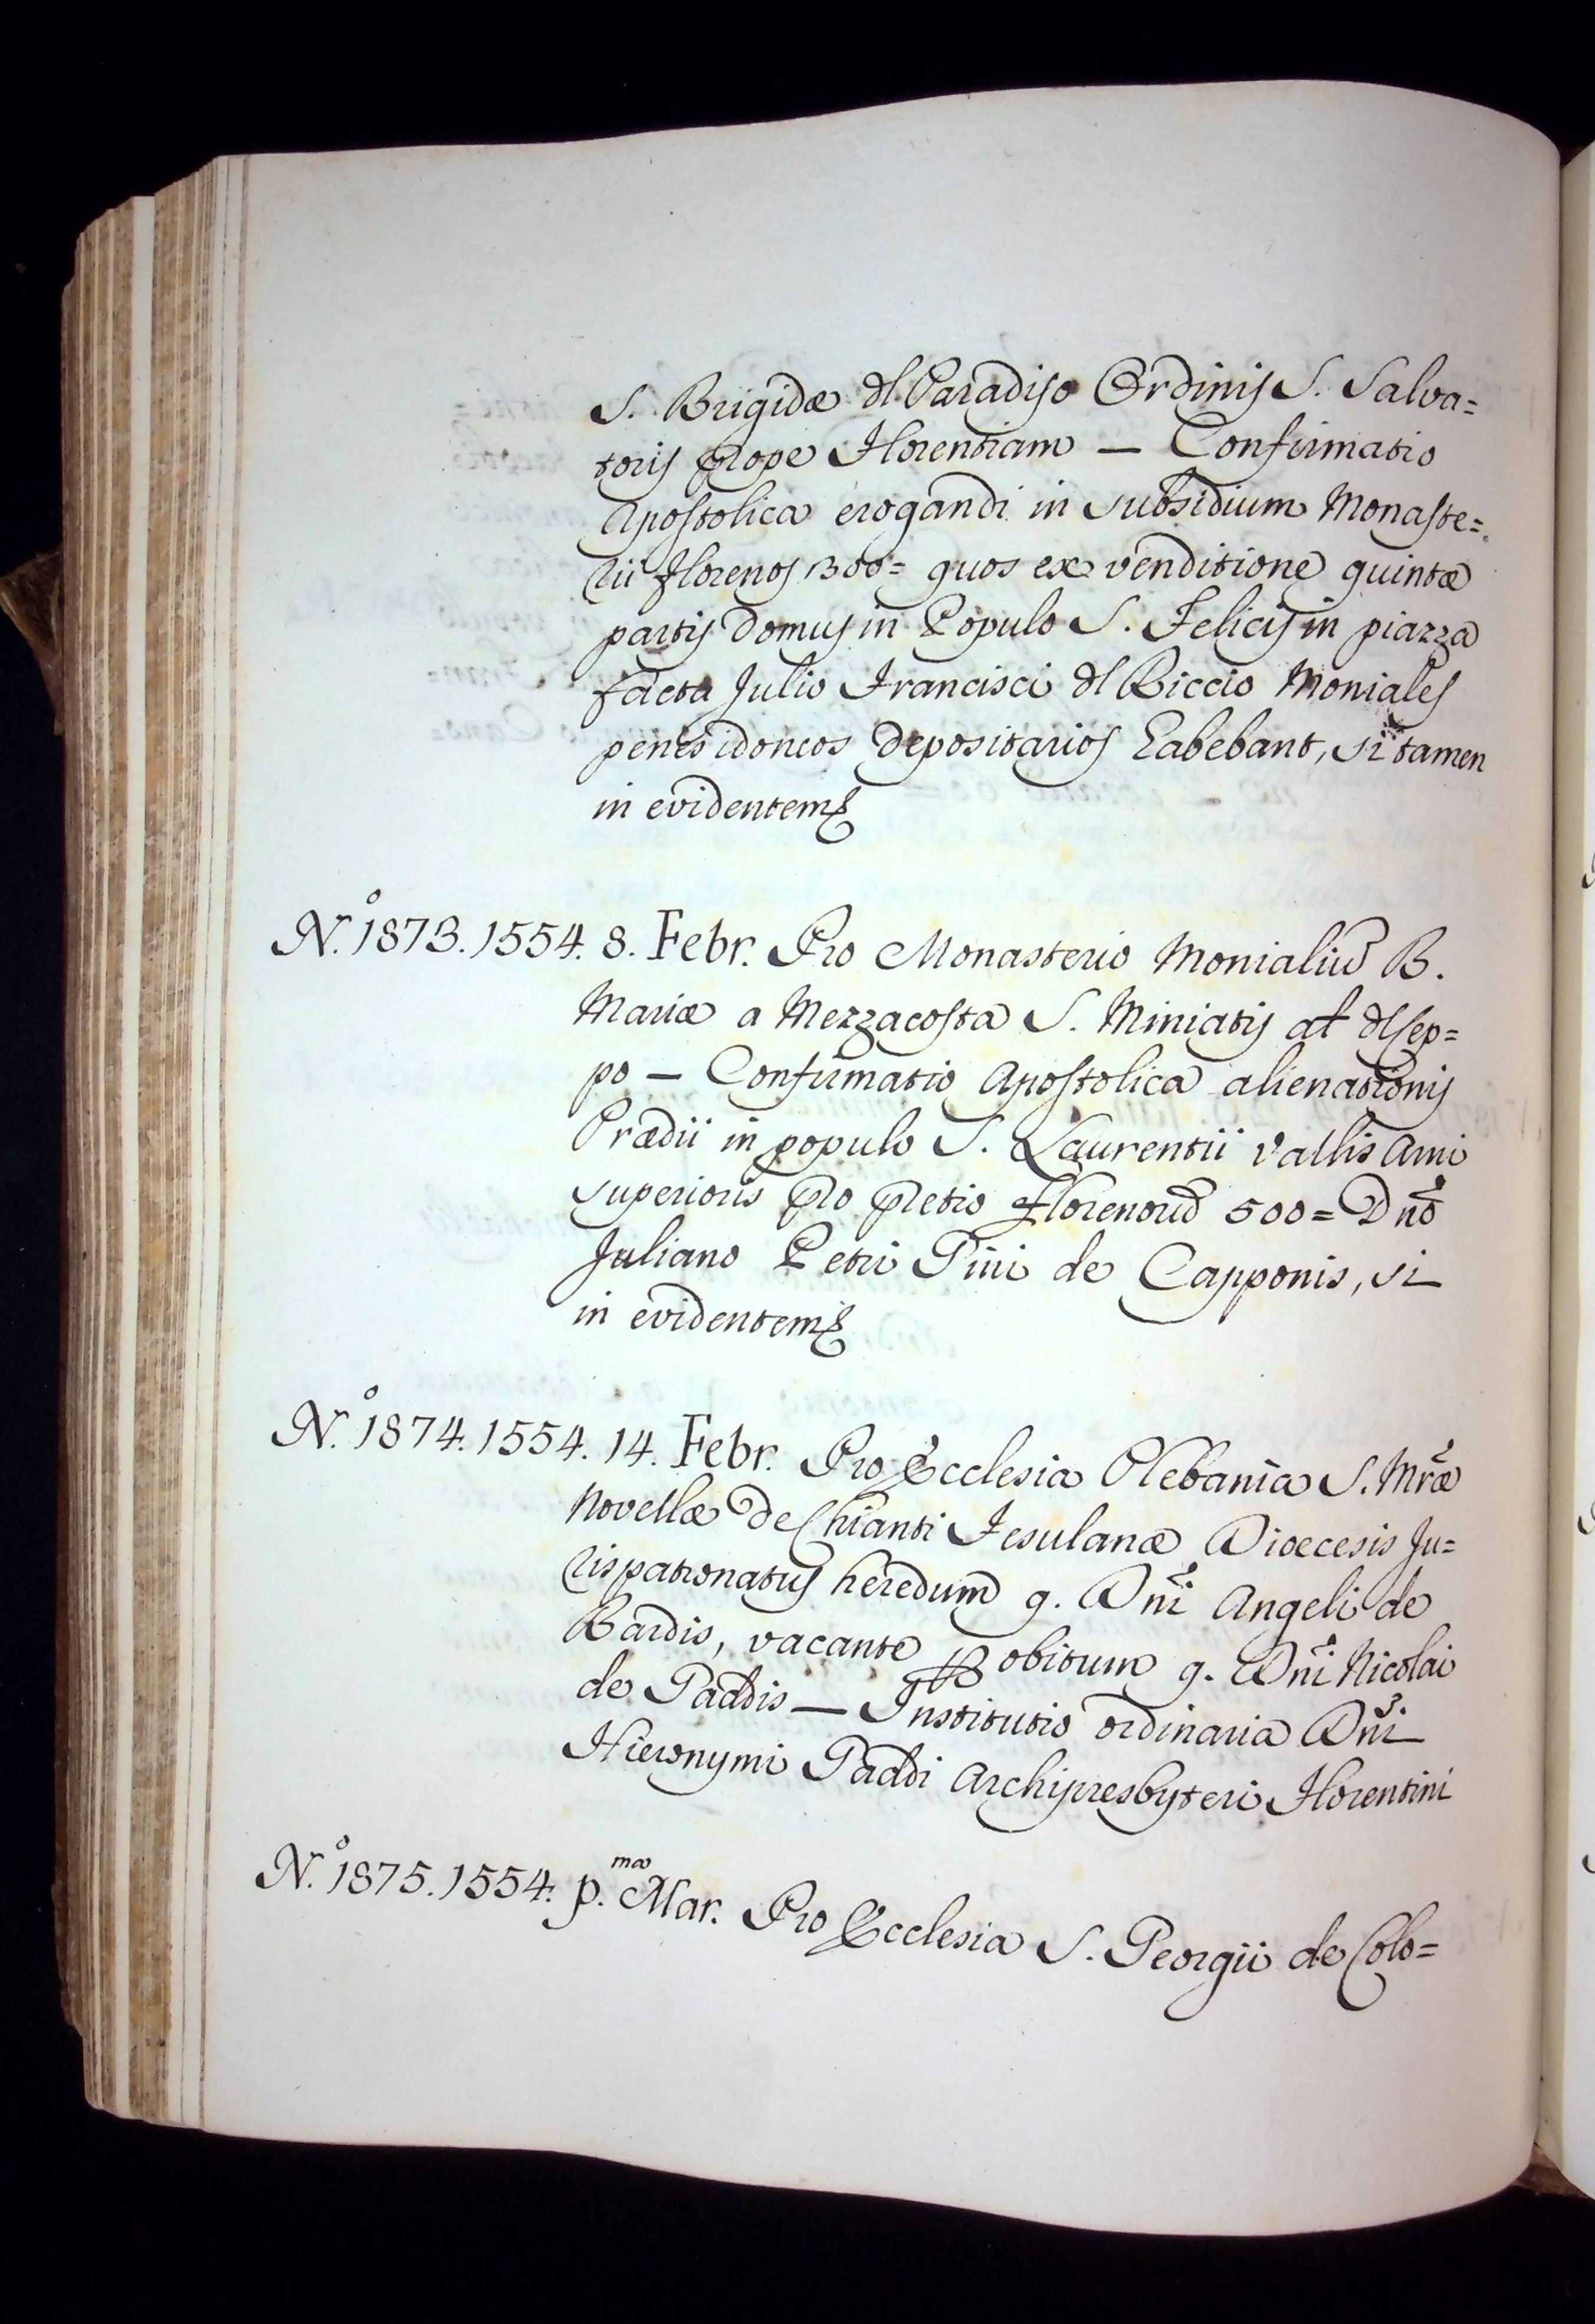 S. Brigidæ dl Paradiso Ordinis S. Salva=
toris prope Florentiam — Confirmatio
Apostolica erogandi in subsidium Monaste=
rii florenos 1300= quos ex venditione quintæ
partis domus in Populo S. Felicis in piazza
facta Julio Francisci dl Riccio Moniales
penes idoneos depositarios habebant, si tamen
in evidentem &
N.º 1873. 1554. 8. Febr. Pro Monasterio Monialiũ B.
Mariæ a Mezzacosta S. Miniatis al dlsep=
po — Confirmatio Apostolica alienationis
Prædii in populo S. Laurentii Vallis Arni
superioris pro pretio florenorũ 500= Dnõ
Juliano Petri Pini de Capponis, si
in evidentem &
N.º 1874. 1554. 14. Febr. Pro Ecclesia Plebania S. Mræ
Novellæ de Chianti Fesulanæ Dioecesis Ju=
rispatronatus heredum q. Dni Angeli de
Bardis, vacante p obitum q. Dni Nicolai
de Gaddis — Institutio ordinaria Dni
Hieronymi Gaddi Archipresbyteri Florentini
N.º 1875. 1554. p.ma Mar. Pro Ecclesia S. Georgii de Colo=